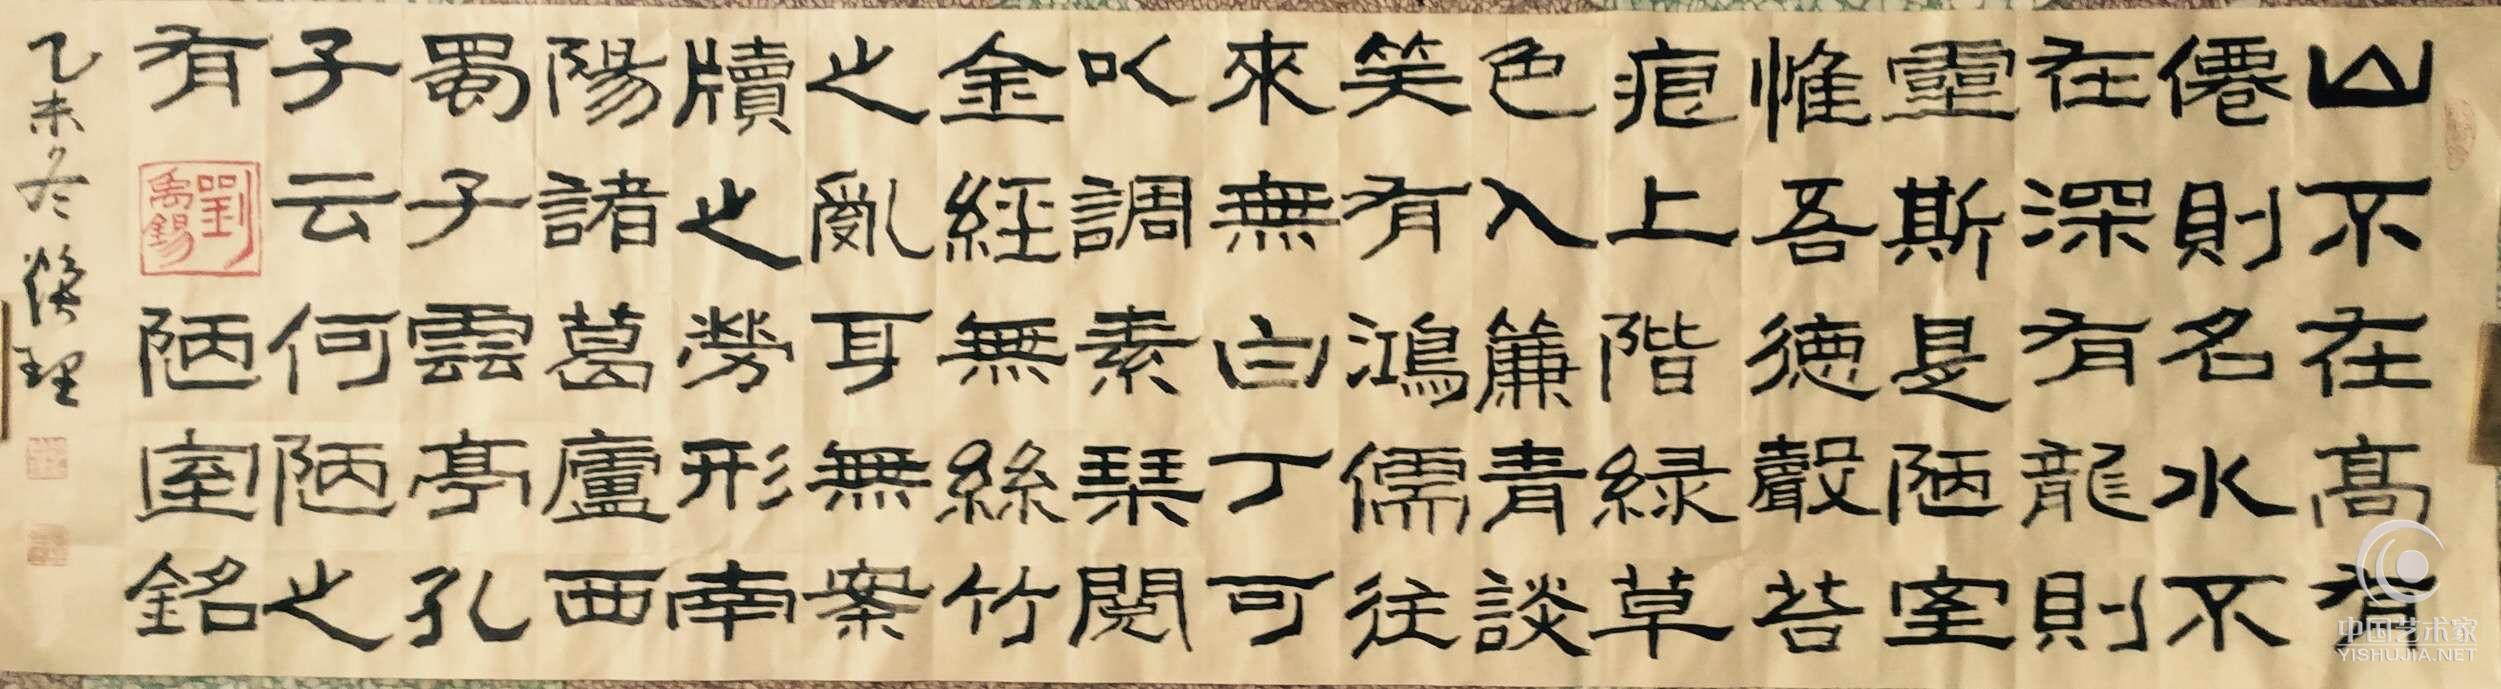 山不在高有
僊則名水不
在深有龍則
靈斯是陋室
惟吾德馨苔
痕上階緑草
色入簾青談
笑有鴻儒往
來無白丁可
以調素琴閲
金經無絲竹
之亂耳無案
牘之勞形南
陽諸葛廬西
蜀子雲亭孔
子云何陋之
有
劉禹錫
陋室銘
乙未冬理
中国艺术家
YISHUJIA.NET